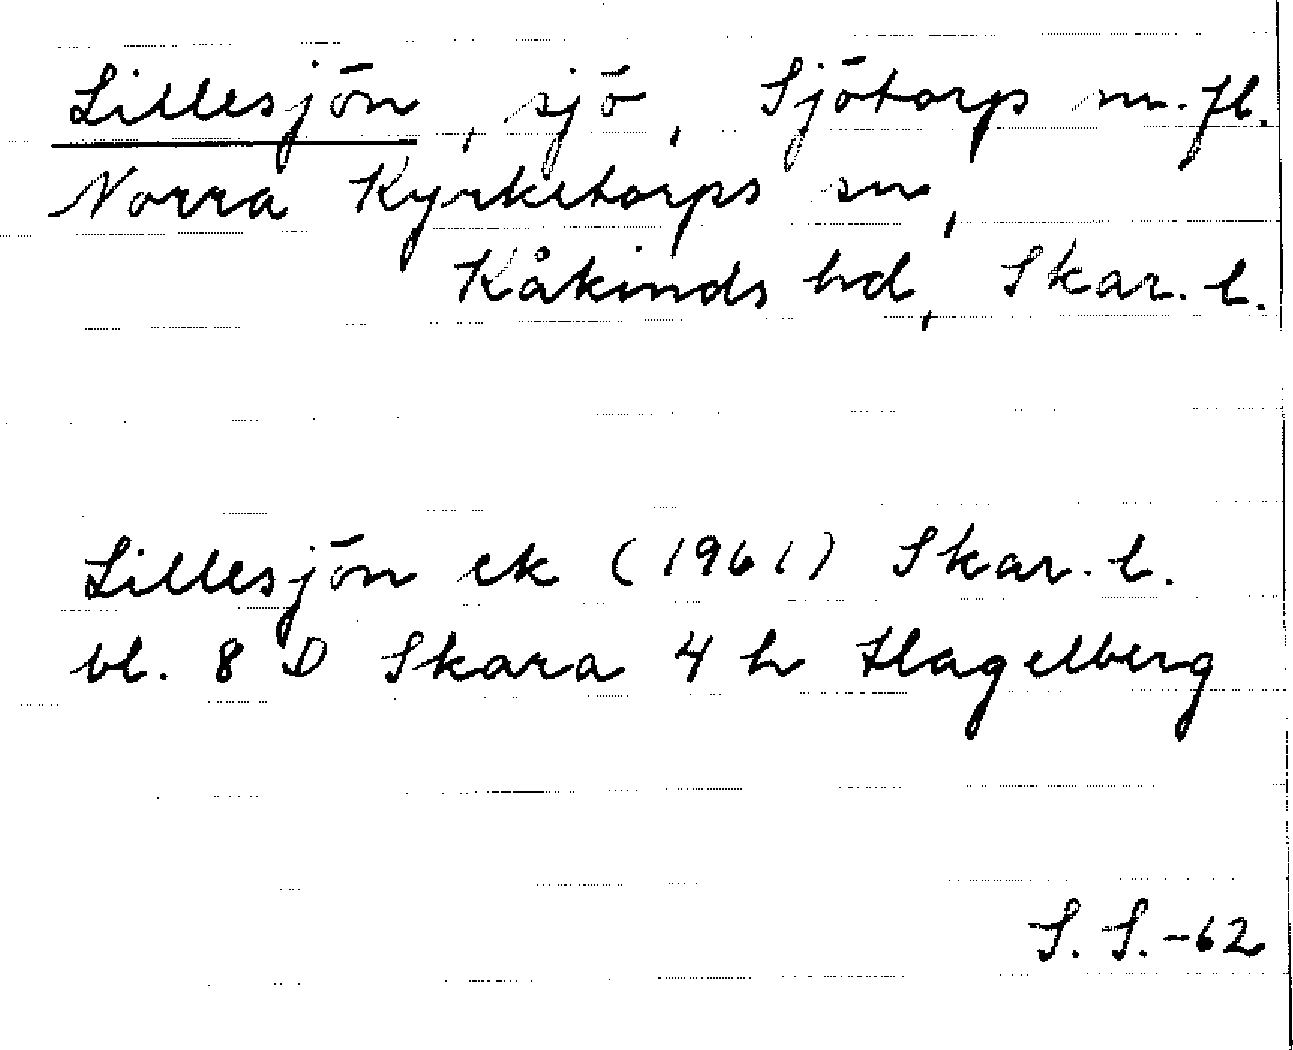 Lillesjön, sjö, Sjötorp m.fl.
Norra Kyrketorps sn,
Kåkinds hd, Skar. l.
Lillesjön ek (1961) Skar. l.
bl. 8 D Skara 4 h Hagelberg
S. S. -62